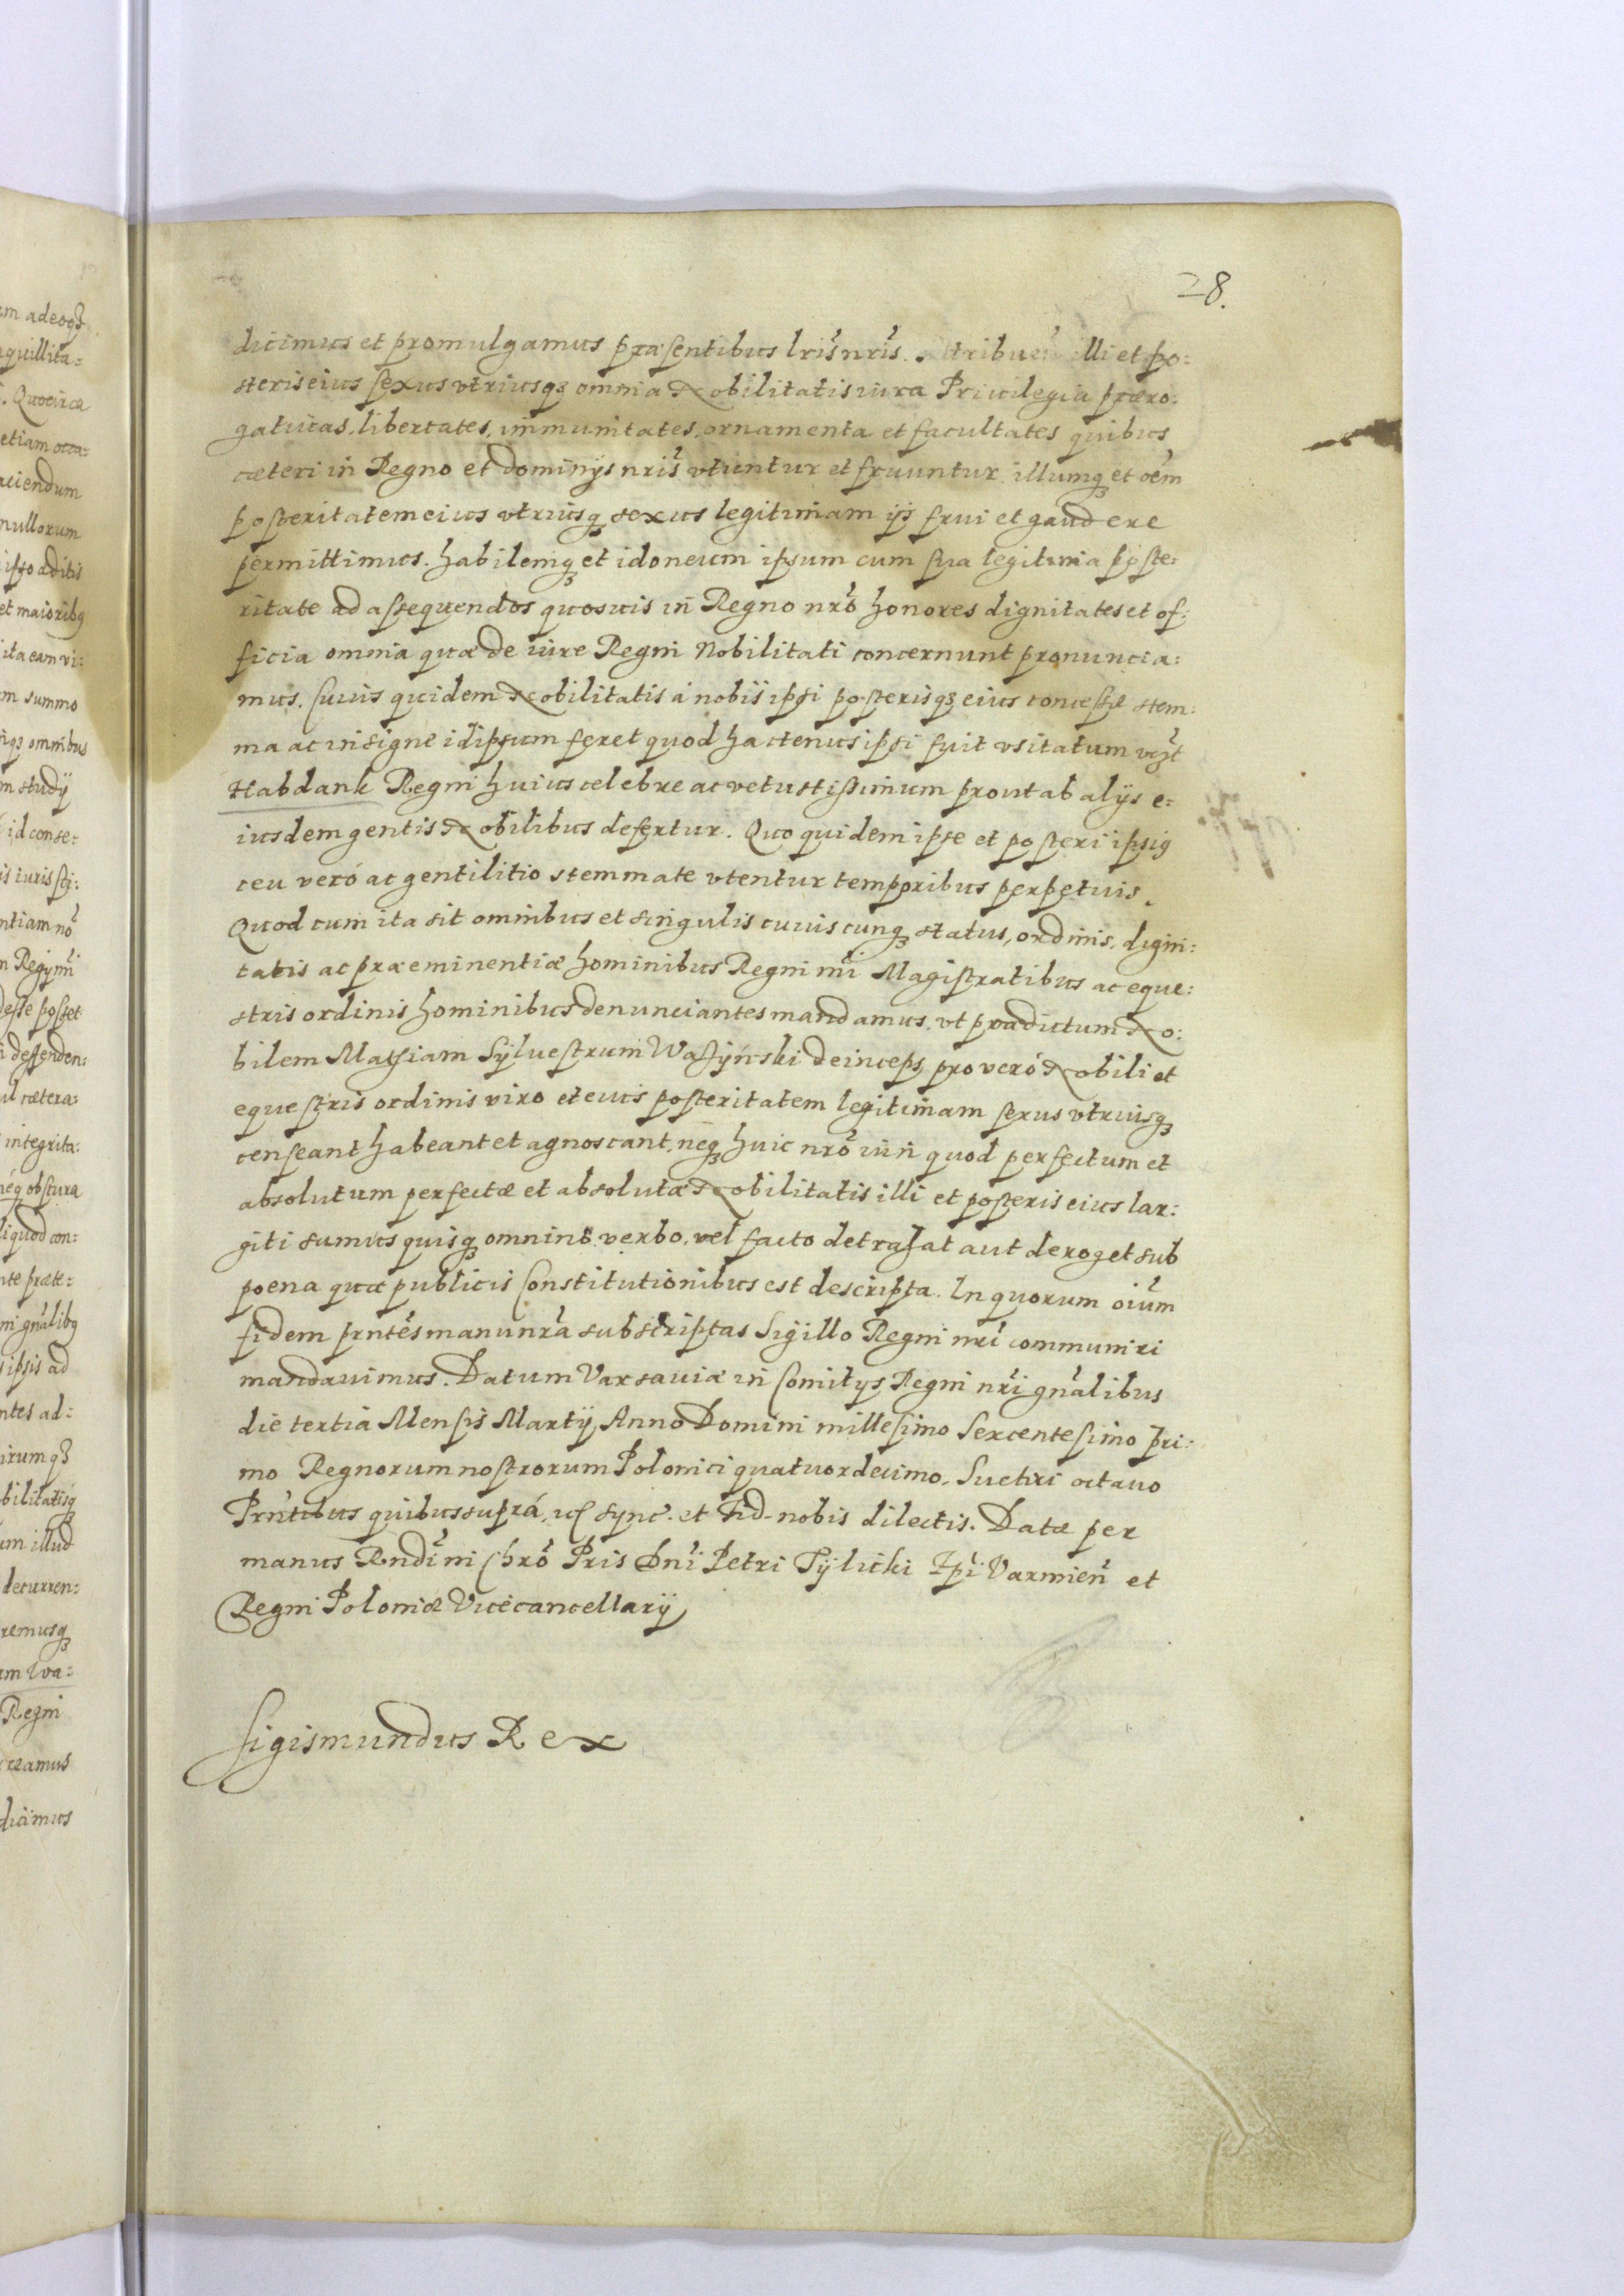 28.
dicimus et promulgamus præsentibus lrīs nrīs. Attribuen̄ illi et po:
steris eius sexus vtriusq; omnia Nobilitatis iura Priuilegia præro:
gatiuas, libertates, immunitates, ornamenta et facultates quibus
cæteri in Regno et Dominÿs nrīs vtuntur et fruuntur. illumq; et oēm
posteritatem eius vtriusq; sexus legitimam ijs frui et gaudere
permittimus. habilemq; et idoneum ipsum cum sua legitima poste:
ritate ad assequendos quosuis in Regno nrō honores dignitates et of:
ficia omnia quæ de iure Regni Nobilitati concernunt pronuncia:
mus. Suius quidem Nobilitatis á nobis ipsi posterisq; eius concessæ stem:
ma ac insigne idipsum feret quod hactenus ipsi fuit vsitatum vcz̄t
Habdank Regni huius celebre ac vetustissimum prout ab alijs e:
iusdem gentis Nobilibus defertur. Quo quidem ipse et posteri ipsiq
ceu veró ac gentilitio stemmate vtentur temporibus perpetuis.
Quod cum ita sit omnibus et singulis cuiuiscunq; status, ordinis, digni:
tatis ac præeminentiæ hominibus Regni nrī Magistratibus ac eque:
stris ordinis hominibus denunciantes mandamus, vt prædictum No:
bilem Mathiam Syluestrum Wasÿński deinceps pro veró Nobili et
equestris ordinis viro et eius posteritatem legitimam sexus vtriusq;
censeant habeant et agnoscant, neq; huic nrō iuri quod perfectum et
absolutum perfectæ et absolutæ Nobilitatis illi et posteris eius lar:
giti sumus quisq; omninò verbo, vel facto detrahat aut deroget sub
poena quæ publicis Constitutionibus est descripta. In quorum oiūm
fidem prntēs manu nrā subscriptas Sigillo Regni nrī communiri
mandauimus. Datum Varsauiæ in Comitijs Regni nrī gnālibus
die tertia Mensis Martÿ Anno Domini millesimo Sexcentesimo pri:
mo Regnorum nostrorum Polonici quatuordecimo. Suetici octauo
Prntibus quibus suprá, vs̄ sync. et Fid. nobis dilectis. Datæ per
manus Rndīmi Chrō Pris Dnī Petri Tÿlicki Epī Varmien̄ et
Regni Poloniæ Vicecancellarÿ
Sigismundus Rex